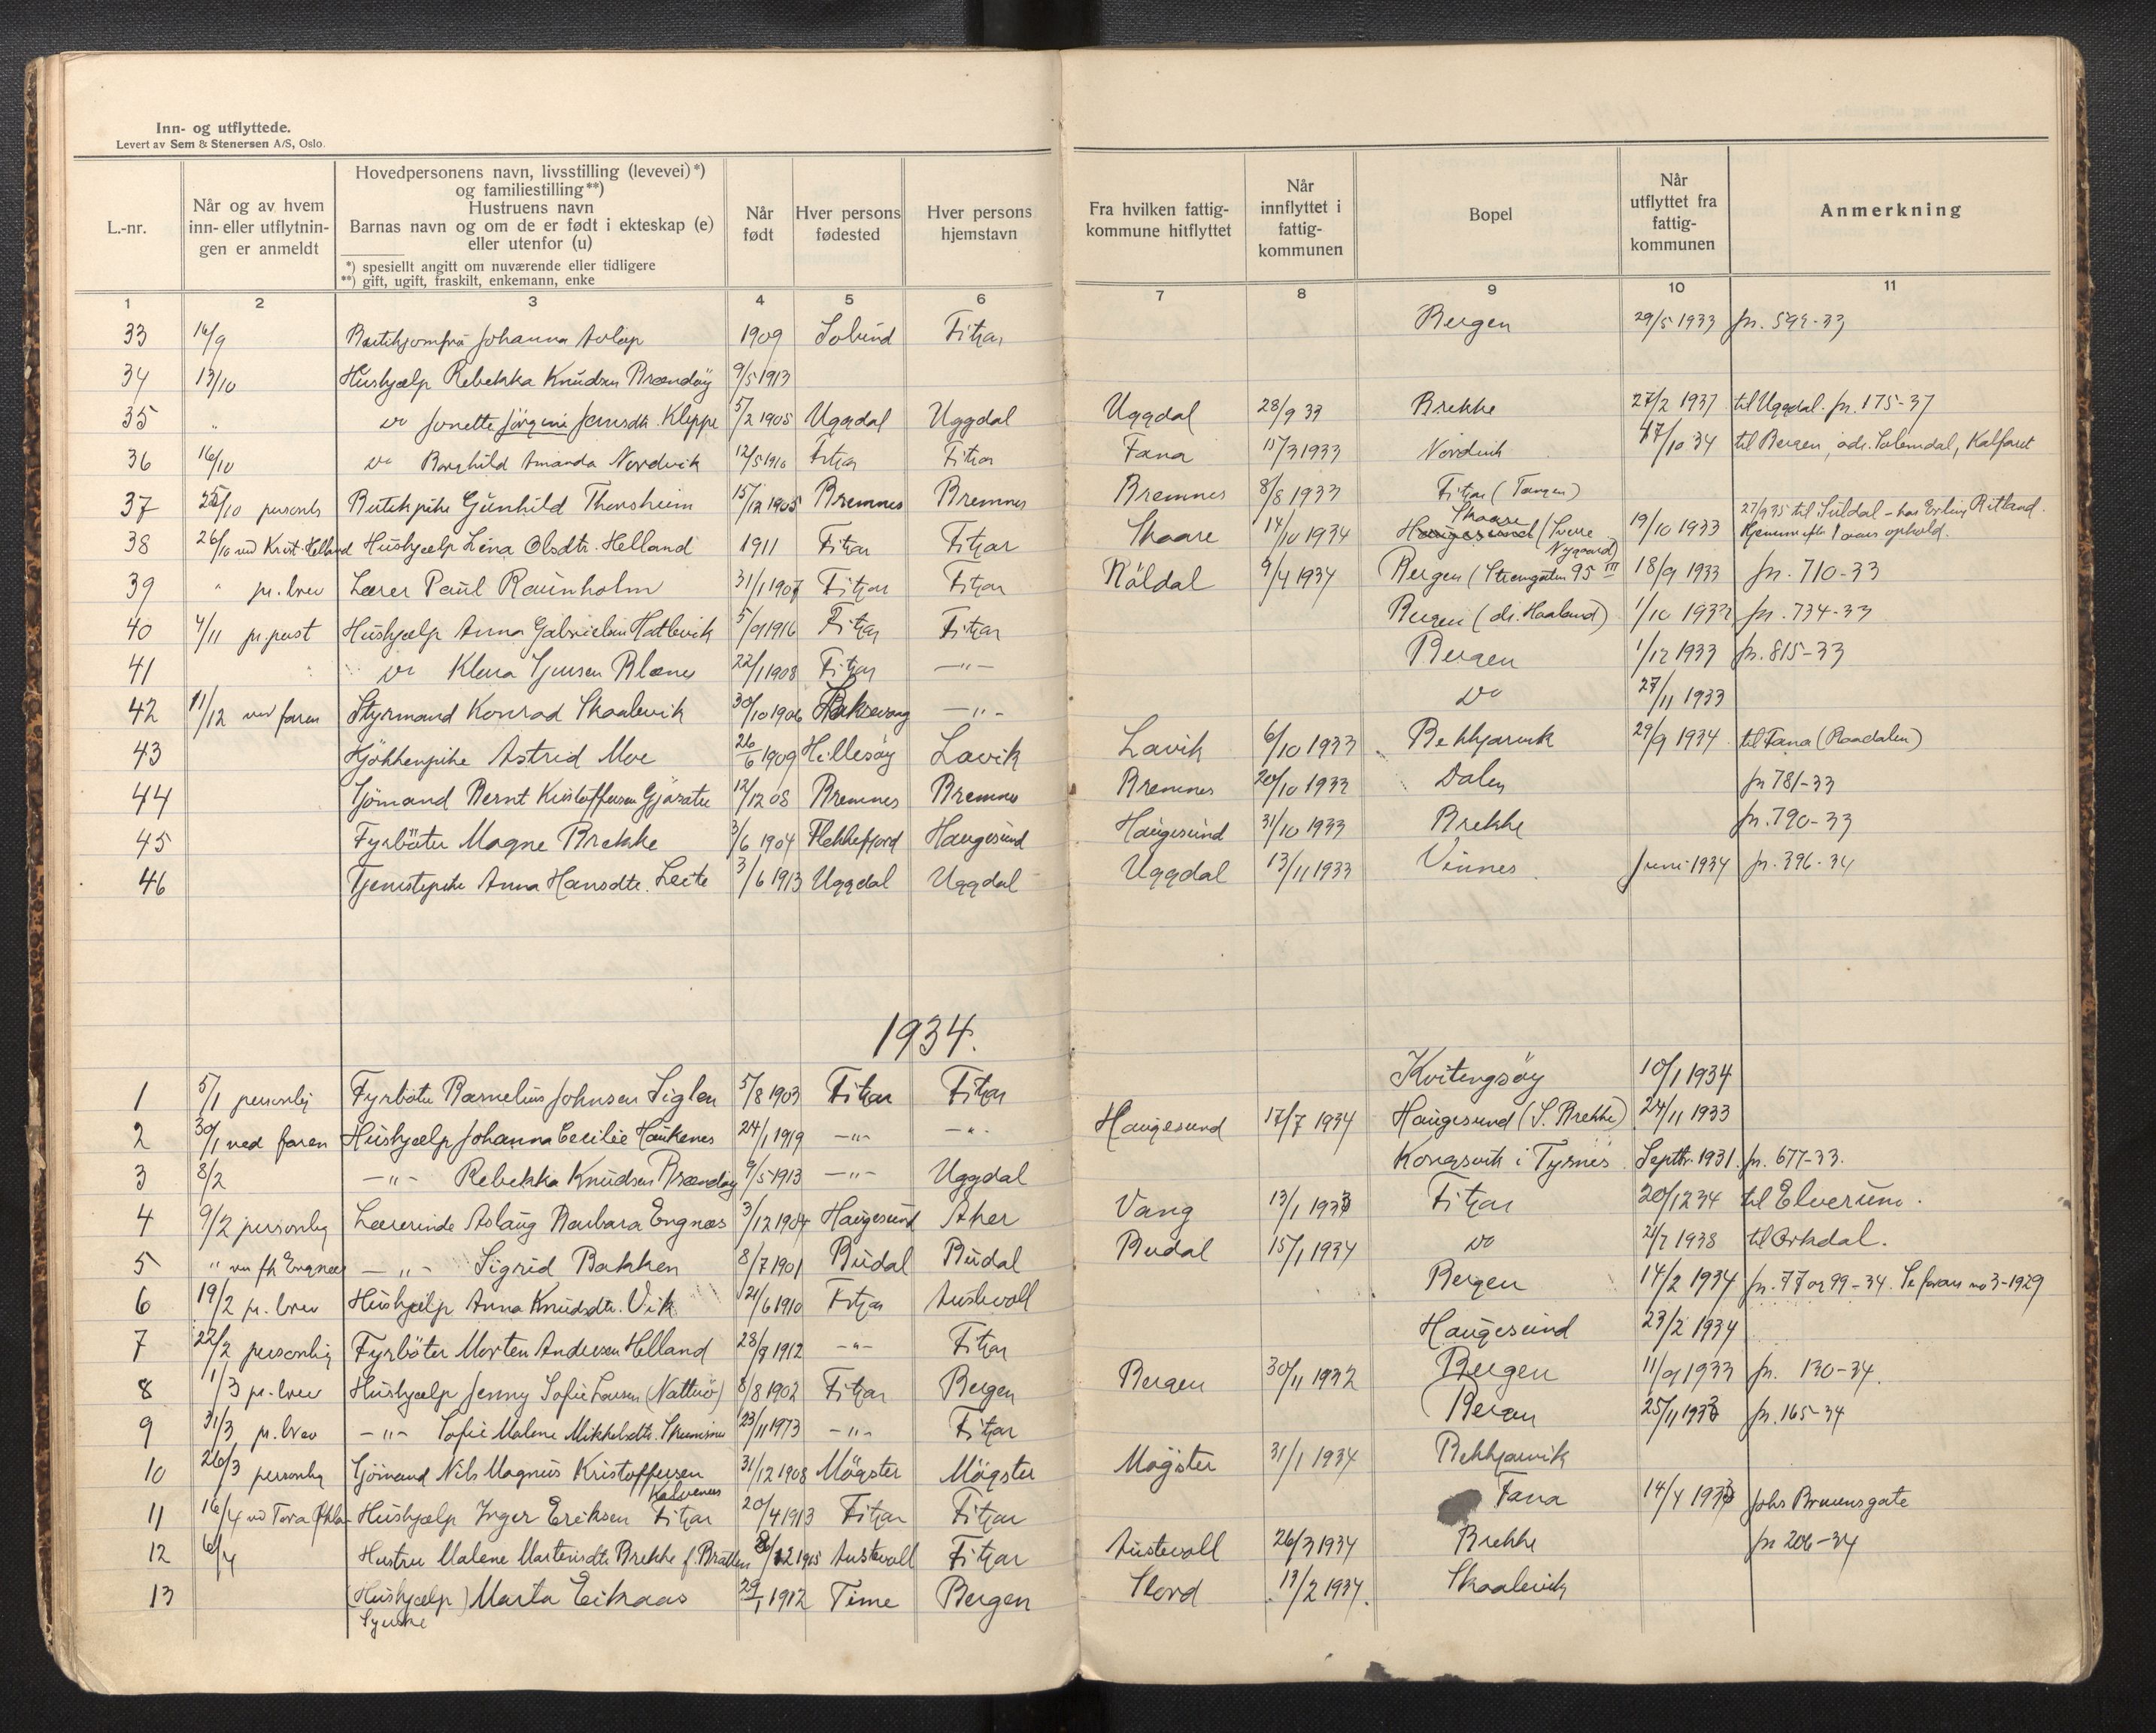 Inn- og utflyttede.
Levert av Sem & Stenersen A/S, Oslo.
L.-nr.
Når og av hvem inn- eller utflytningen er anmeldt
Hovedpersonens navn, livsstilling (levevei)*) og familiestilling**)
Hustruens navn
Barnas navn og om de er født i ekteskap (e) eller utenfor (u)
*) spesiellt angitt om nuværende eller tidligere
**) gift, ugift, fraskilt, enkemann, enke
Når født
Hver persons fødested
Hver persons hjemstavn
Fra hvilken fattigkommune hitflyttet
Når innflyttet i fattigkommunen
Bopel
Når utflyttet fra fattigkommunen
Anmerkning
1 2 3 4 5 6 7 8 9 10 11
33 16/9 Johanna 1909 Solund Fitjar Bergen 29/5 1933 jn. 599-33
34 13/10 Hushjælp Rebekka Knudsen Brandøy 9/5 1913
35 " Do Jonette Jörgine Jansdtr. Kleppe 5/2 1905 Uggdal Uggdal Uggdal 28/9 33 Brekke 27/2 1937 til Uggdal. jn. 175-37
36 16/10 Do Borghild Amanda Nordvik 12/5 1910 Fitjar Fitjar Fana 15/3 1933 Nordvik 17/10 34 til Bergen, adr. Kalfaret
37 25/10 personl. Gunhild Thorsheim 15/12 1905 Bremnes Bremnes Bremnes 8/8 1933 Fitjar (Tangen) 27/9 35 til Suldal - hos Erling Ritland.
38 26/10 ved Krist. Helland Hushjælp Lina Olsdtr. Helland 1911 Fitjar Fitjar Skaare 14/10 1934 Haugesund Skaare (Nygaard) 19/10 1933 Hjemme efter 1 aars ophold.
39 " pr. brev Lærer Paul Raunholm 31/1 1907 Fitjar Fitjar Röldal 9/4 1934 Bergen (Strømgaten 95 III 18/9 1933 jn. 710-33
40 4/11 pr. post Hushjælp Anna Gabrielsen Hatlevik 5/9 1916 Fitjar Fitjar Bergen (dr. Haaland) 1/10 1933 jn. 734-33
41 " Do Klara 22/1 1908 Fitjar -"- Bergen 1/12 1933 jn. 815-33
42 11/12 ved faren Styrmand Konrad Skaalevik 30/10 1906 -"- Do 27/11 1933
43 Kjökkenpike Astrid Moe 26/6 1909 Hillesøy Lavik Lavik 6/10 1933 Bekkjarvik 29/9 1934 til Fana (Raadalen)
44 Sjömand Bernt Kristoffersen 12/12 08 Bremnes Bremnes Bremnes 20/10 1933 Dalen jn 781-33
45 Fyrböter Magne Brekke 3/6 1904 Flekkefjord Haugesund Haugesund 31/10 1933 Brekke jn. 790-33
46 Tjenestepike Anna Hansdtr. Leite 3/6 1913 Uggdal Uggdal Uggdal 13/11 1933 Vinnes Juni 1934 jn. 396-34
1934.
1 5/1 personlig Fyrböter Johnsen Siglen 5/8 1903 Fitjar Fitjar Kvitengsøy 10/1 1934
2 30/1 ved faren Hushjælp Johanna Cecilie Haukenes 24/1 1919 -"- -"- Haugesund 17/7 1934 Haugesund (S. Brekke) 24/11 1933
3 8/2 -"- Rebekka Knudsen Brandøy 9/5 1913 -"- Uggdal Kongsvik i Tysnes Septbr. 1931. jn. 677-33.
4 9/2 personlig Lærerinde Aslaug Barbara Engnæs 3/12 1904 Haugesund Aker Vang 13/1 1933 Fitjar 20/12 34 til Elverum.
5 " ved frk Engnæs -"- Sigrid Bakken 8/7 1901 Budal Budal Budal 15/1 1934 Do 21/7 1938 til Orkdal.
6 19/2 pr. brev Hushjælp Anna Knudsdtr. Vik 21/6 1910 Fitjar Austevoll Bergen 14/2 1934 jn. 77 og 99-34. Se no 3-1929
7 22/2 personlig Fyrböter Morten Andersen Helland 28/9 1912 -"- Fitjar Haugesund 23/2 1934
8 1/3 pr. brev Hushjælp Jenny Sofie Larsen (Nattnö) 8/8 1902 Fitjar Bergen Bergen 30/11 1932 Bergen 11/9 1933 jn. 130-34.
9 31/3 pr. brev -"- Sofie Malene Mikkelsdtr. 23/11 1973 -"- Fitjar Bergen 25/11 1933 jn. 165-34
10 26/3 personlig Sjömand Nils Magnus Kristoffersen 31/12 1908 Mögster Mögster Mögster 31/1 1934 Bekkjarvik
11 16/4 ved Tora Hushjælp Inger Eriksen Kalvenes Fitjar 20/4 1913 Fitjar Fitjar Fana 14/4 1933 Johs Bruunsgate
12 6/4 Hustru Malene Martinsdtr. Brekke f. 1915 Austevoll Fitjar Austevoll 26/3 1934 Brekke jn 206-34
13 (Hushjælp) Marta Eikaas 29/1 1912 Time Bergen Stord 13/2 1934. Skaalevik
Syerske